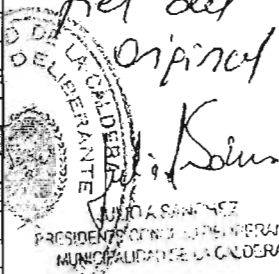 fiel del
original
DE LA CALDERA
DELIBERANTE
JULIO A SANCHEZ
PRESIDENTE CONCEJO DELIBERAN
MUNICIPALIDAD DE LA CALDERA